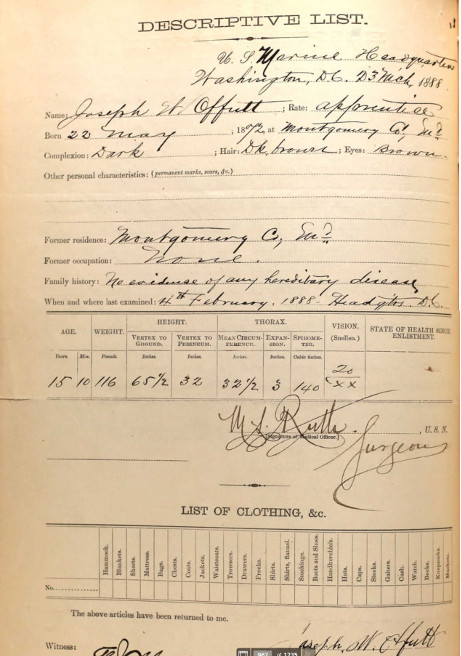 DESCRIPTIVE LIST.
U. S. Marine Headquarters
Washington, D.C. 23 Mch, 1888
Name: Joseph W. Offutt; Rate: apprentice
Born 22 May, 1872 at Montgomery Co, Md
Complexion: Dark; Hair: Dk. brown; Eyes: Brown.
Other personal characteristics: (permanent marks, scars, &c.)
Former residence: Montgomery Co, Md
Former occupation: None.
Family history: No evidence of any hereditary disease
When and where last examined: 4th February, 1888 Headqtrs D.C.
AGE. WEIGHT. HEIGHT. THORAX. VISION. (Snellen.) STATE OF HEALTH ENLISTMENT.
VERTEX TO GROUND. VERTEX TO PERINEUM. MEAN CIRCUMFERENCE. EXPANSION. SPIROMETER.
Years Mos. Pounds. Inches. Inches. Inches. Inches. Cubic inches.
15 10 116 65 1/2 32 32 1/2 3 140 20/XX
, U. S. N.
(Signature of Medical Officer.)
Surgeon
LIST OF CLOTHING, &c.
Hammock. Blankets. Sheets. Mattress. Bags. Chests. Coats. Jackets. Waistcoats. Trowsers. Drawers. Frocks. Shirts. Shirts, flannel. Stockings. Boots and Shoes. Handkerchiefs. Hats. Caps. Stocks. Gaiters. Cash. Watch. Books. Keepsakes.
No.
The above articles have been returned to me.
Witness: Joseph W. Offutt
967 of 1235